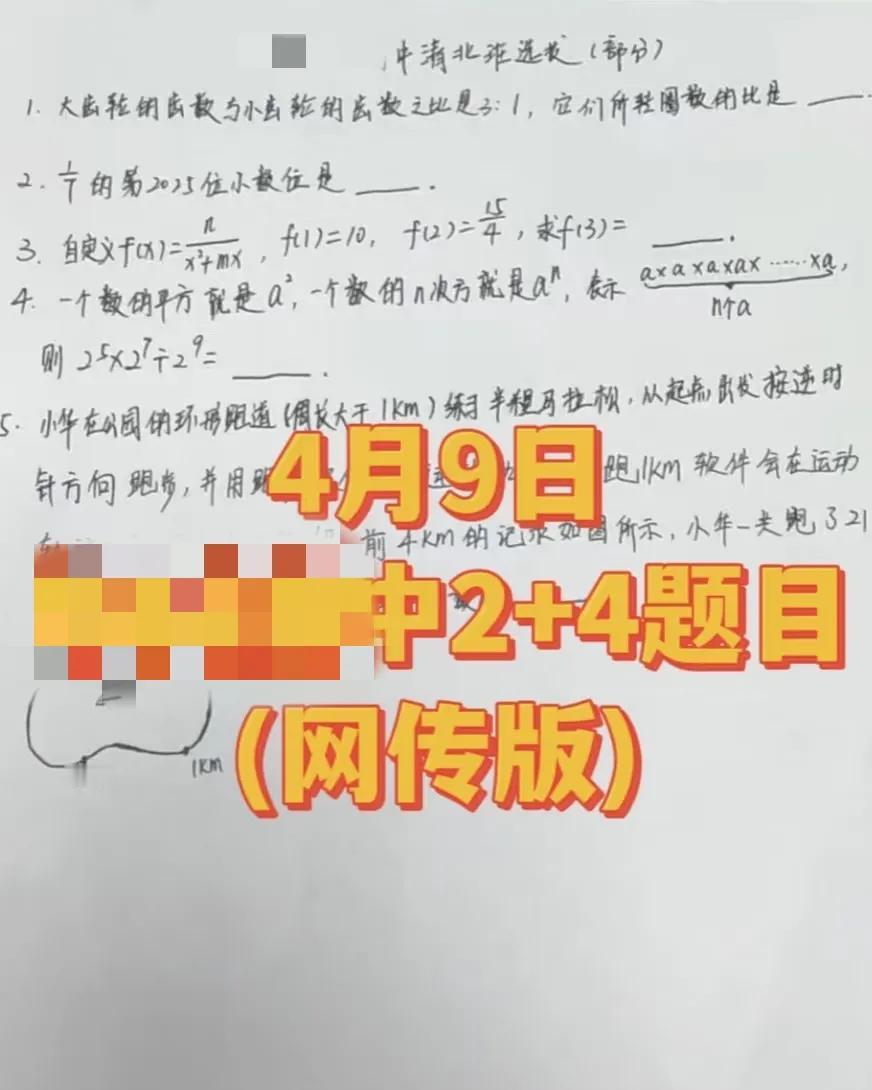 中清北班选拔(部分)
1. 大齿轮的齿数与小齿轮的齿数之比是3:1, 它们所转圈数的比是 ____.
2. 1/7 的第2025位小数位是 ____.
3. 自定义f(x)=n/(x²+mx), f(1)=10, f(2)=15/4, 求f(3)= ____.
4. 一个数的平方就是a², 一个数的n次方就是aⁿ, 表示 a×a×a×a×……×a,
n个a
则 2⁵×2⁷÷2⁹= ____.
5. 小华在公园的环形跑道(周长大于1km)练习半程马拉松, 从起点出发按逆时
针方向跑步, 并用跑 跑1km 软件会在运动
前4km的记录如图所示, 小华一共跑了21
4月9日
中2+4题目
(网传版)
1km